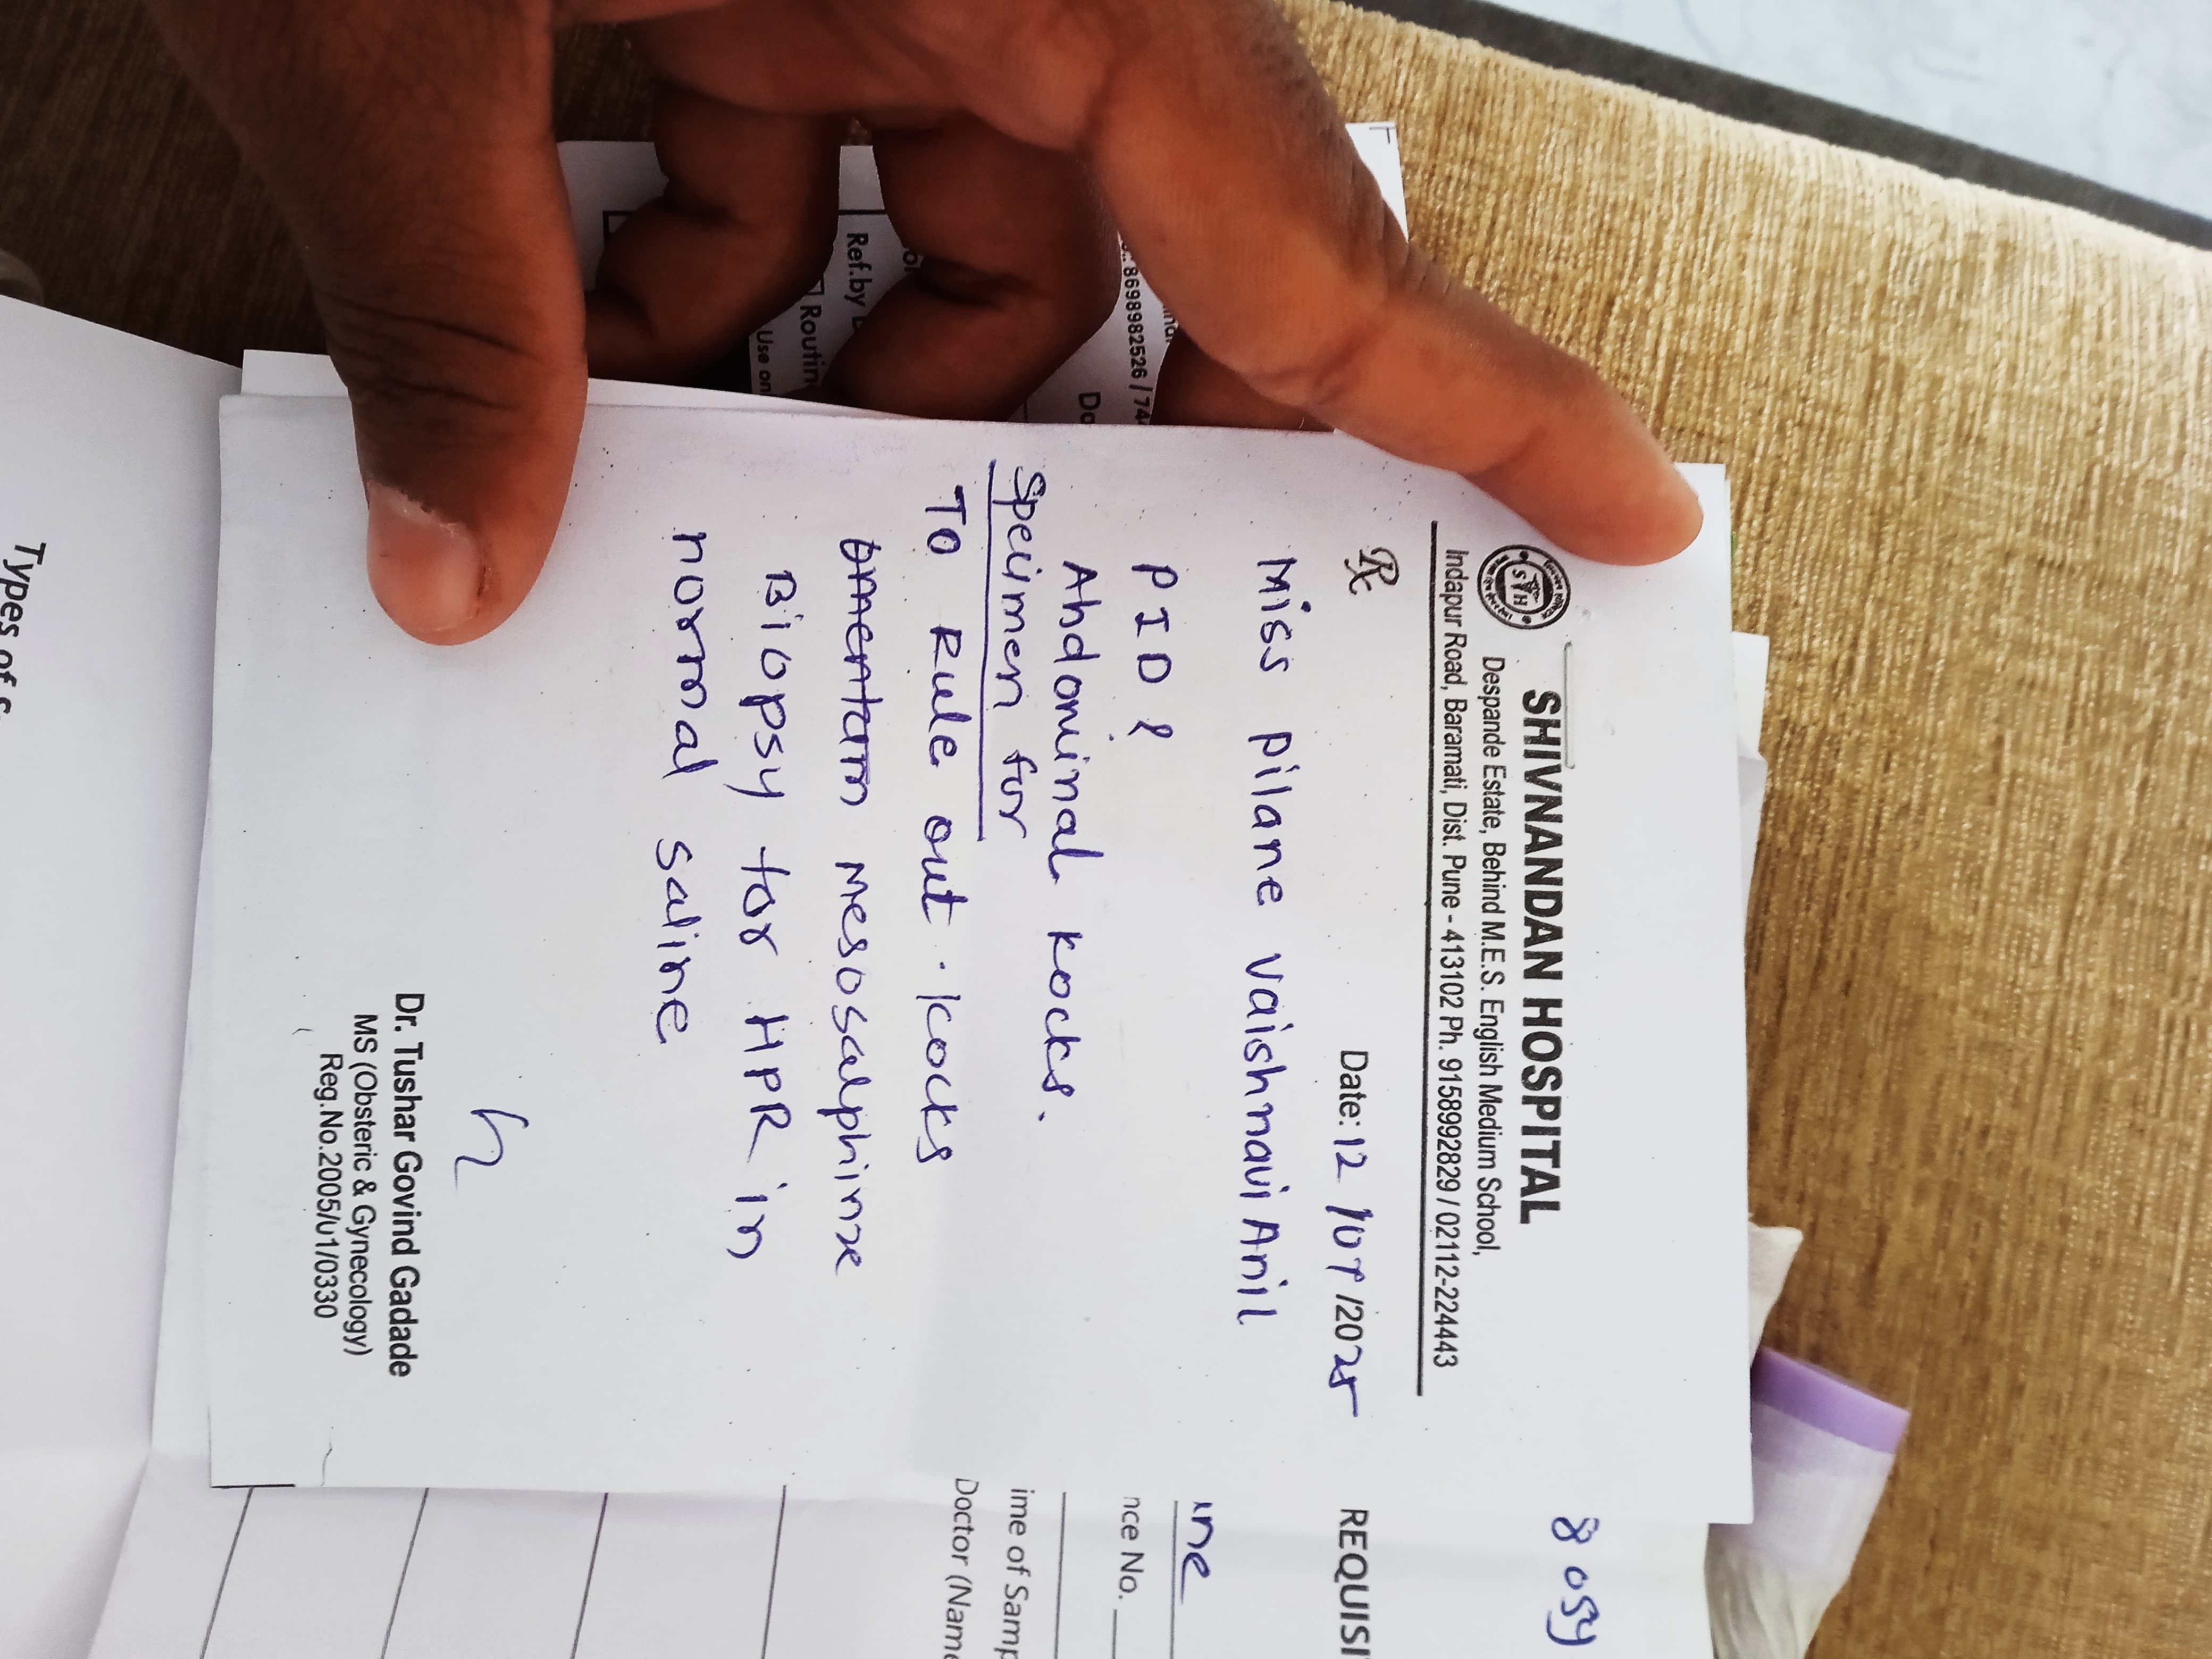 SHIVNANDAN HOSPITAL
Despande Estate, Behind M.E.S. English Medium School,
Indapur Road, Baramati, Dist. Pune - 413102 Ph. 9158992829 / 02112-224443
Rx
Date: 12/07/2025
Miss Pilane Vaishnavi Anil
PID?
Ahdominal kocks.
Specimen for
To Rule out kocks
Omentam Mesosalphinx
Biopsy for HPR in
normal saline
Dr. Tushar Govind Gadade
MS (Obsteric & Gynecology)
Reg.No.2005/u1/0330
8698982526 / 74
Do
Ref.by
Routin
Use on
REQUISI
ine
nce No.
ime of Samp
Doctor (Name
Types of